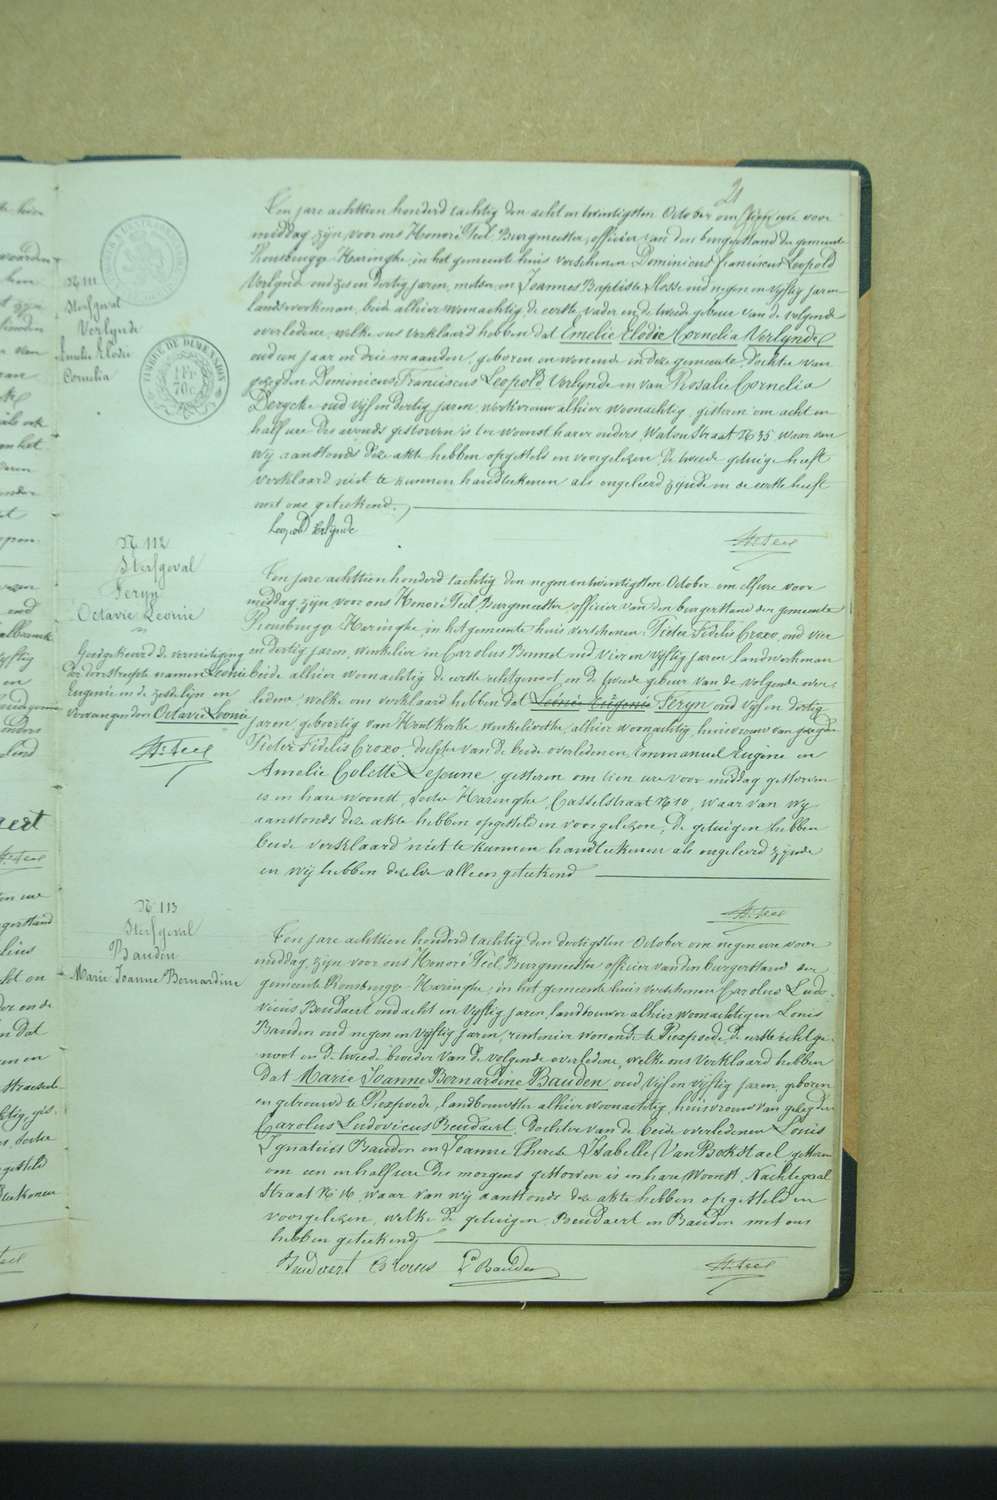 21
N 111
Sterfgeval
Verlynde
Emelie Elodie
Cornelia
TIMBRE DE DIMENSION
1 FR
70 c
Ten jare achttien honderd tachtig den acht en twintigsten October om ure voor
middag, zijn voor ons Honoré Teel, Burgmeester, officier van den burgerstand der gemeente
Rousbrugge Haringhe, in het gemeente huis verschenen Dominicus Franciscus Leopold
Verlynde oud zes en dertig jaren, metser en Joannes Baptiste oud negen en vyftig jaren
landswerkman, beide alhier woonachtig de eerste, vader en de tweede gebeur van de volgende
overledene, welke ons verklaard hebben dat Emelie Elodie Cornelia Verlynde
oud een jaar en drie maanden, geboren en wonende in deze gemeente, dochter van
gezegden Dominicus Franciscus Leopold Verlynde en van Rosalie Cornelia
Derycke oud vyf en dertig jaren, werkvrouw alhier woonachtig, gisteren om acht en
half ure des avonds gestorven is ter woonst harer ouders, Watou Straat N 35, waar van
wy aanstonds deze akte hebben opgesteld en voorgelezen. De tweede getuige heeft
verklaard niet te kunnen handteekenen als ongeleerd zynde en de eerste heeft
met ons geteekend.
Leopold Verlynde
Hr Teel
N 112
Sterfgeval
Feryn
Octavie Leonie
Goedgekeurd de vernietiging
der doorstreepte namen Leonie
Eugenie in de zesde lyn en
vervangen door Octavie Leonie
Hr Teel
Ten jare achttien honderd tachtig den negen en twintigsten October om elf ure voor
middag, zijn voor ons Honoré Teel, Burgmeester, officier van den burgerstand der gemeente
Rousbrugge Haringhe, in het gemeente huis verschenen Pieter Fidelis Croxo, oud vier
en dertig jaren, winkelier en Carolus Bonnet oud vier en vyftig jaren landwerkman
beide alhier woonachtig de eerste echtgenoot en de tweede gebeur van de volgende over-
ledene, welke ons verklaard hebben dat Léonie Eugenie Feryn, oud vyf en dertig
jaren, geboortig van Houtkerke, winkelierster, alhier woonachtig, huisvrouw van gezegden
Pieter Fidelis Croxo, dochter van de beide overledenen, Emmanuel Eugène en
Amelie Colette Lejeune, gisteren om tien ure voor middag gestorven
is in hare woonst, sectie Haringhe, Casselstraat N 10, waar van wy
aanstonds deze akte hebben opgesteld en voorgelezen. De getuigen hebben
beide verklaard niet te kunnen handteekenen als ongeleerd zynde
en wy hebben dezelve alleen geteekend
Hr Teel
N 113
Sterfgeval
Bauden
Marie Joanne Bernardine
Ten jare achttien honderd tachtig den dertigsten October om negen ure voor
middag, zijn voor ons Honoré Teel, Burgmeester officier van den burgerstand der
gemeente Rousbrugge Haringhe, in het gemeente huis verschenen Carolus Ludo-
vicus Beudaert oud acht en vyftig jaren, landbouwer alhier woonachtig en Louis
Bauden oud negen en vyftig jaren, rentenier wonende te Rexpoede, de eerste echtge-
noot en de tweede broeder van de volgende overledene, welke ons verklaard hebben
dat Marie Joanne Bernardine Bauden, oud vyf en vyftig jaren, geboren
en getrouwd te Rexpoede, landbouwster alhier woonachtig, huisvrouw van gezegden
Carolus Ludovicus Beudaert, dochter van de beide overledenen Louis
Ignatius Bauden en Joanne Therese Isabelle Van Bokstael gisteren
om een en half ure des morgens gestorven is in hare woonst, Nachtegaal
Straat N 16, waar van wy aanstonds deze akte hebben opgesteld en
voorgelezen, welke de getuigen Beudaert en Bauden met ons
hebben geteekend
Beudaert Carolus Ls Bauden
Hr Teel